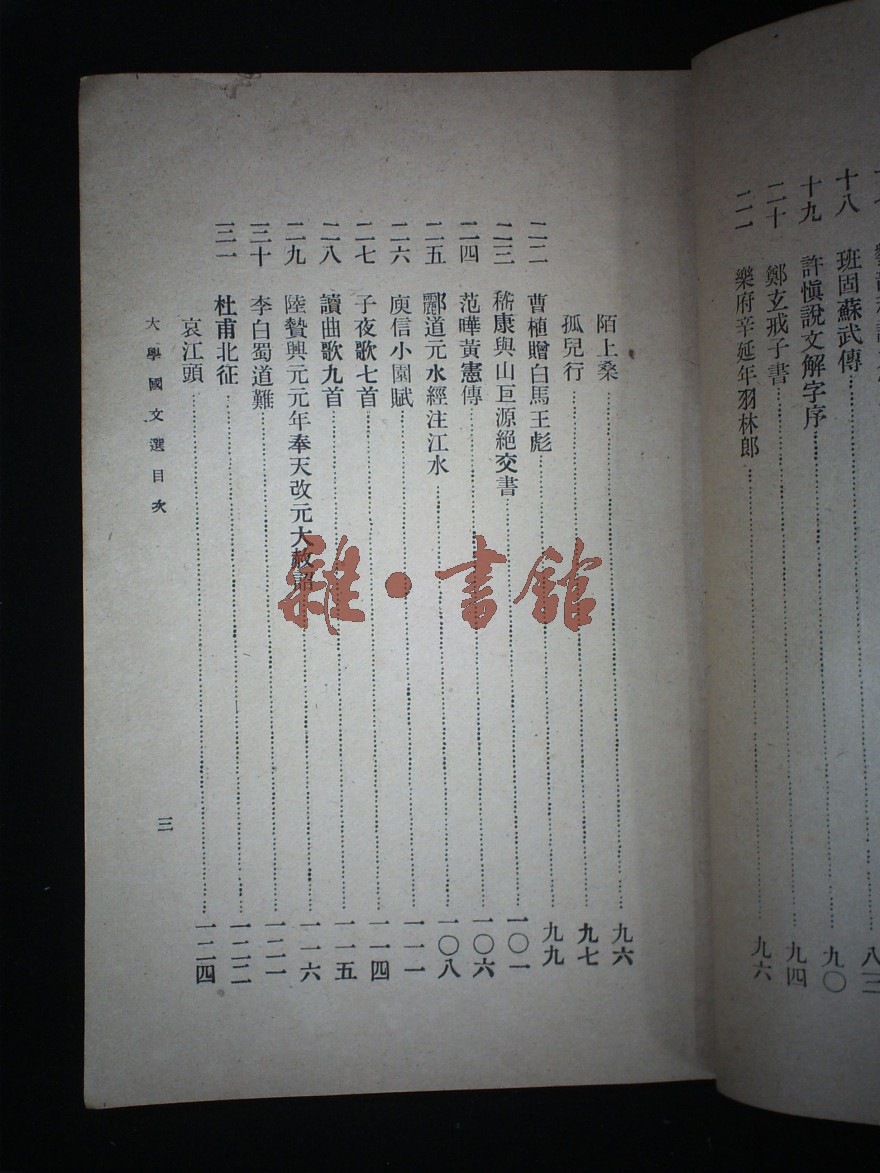 十八 班固蘇武傳 八三
十九 許慎說文解字序 九〇
二十 鄭玄戒子書 九四
二一 樂府辛延年羽林郎 九六
陌上桑 九六
孤兒行 九七
二二 曹植贈白馬王彪 九九
二三 嵇康與山巨源絕交書 一〇一
二四 范曄黃憲傳 一〇六
二五 酈道元水經注江水 一〇八
二六 庾信小園賦 一一一
二七 子夜歌七首 一一四
二八 讀曲歌九首 一一五
二九 陸贄興元元年奉天改元大赦詔 一一六
三十 李白蜀道難 一二一
三一 杜甫北征 一二二
哀江頭 一二四
大學國文選目次
三
雜·書館